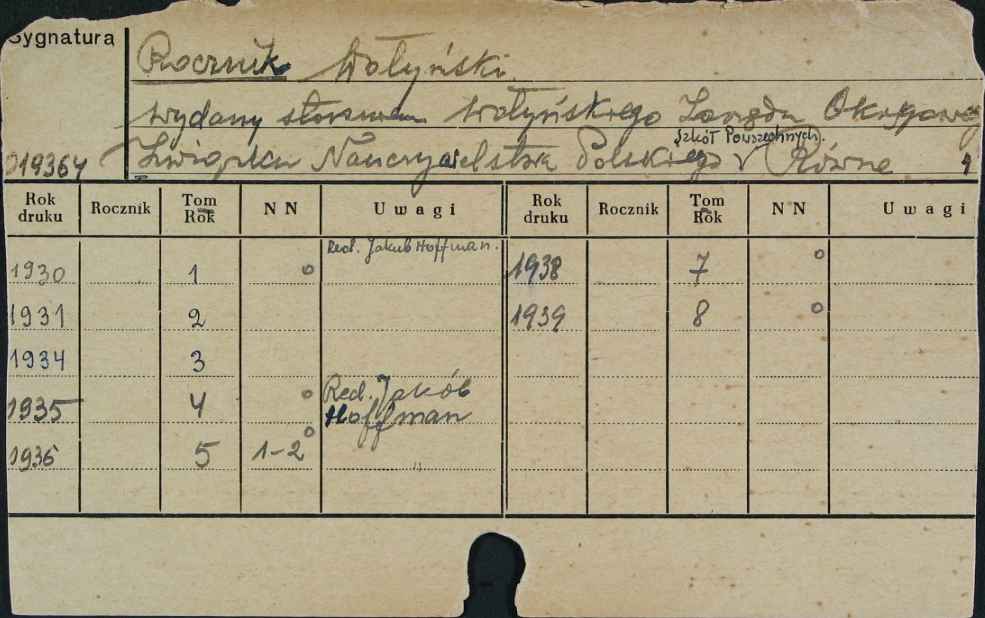 Sygnatura
Rocznik Wołyński.
wydany staraniem Wołyńskiego Zarządu Okręgoweg
Szkół Powszechnych.
Związku Nauczycielstwa Polskiego √ Równe
019364
Rok druku Rocznik Tom Rok NN Uwagi Rok druku Rocznik Tom Rok NN Uwagi
Red. Jakub Hoffman.
1930 1 o 1938 7 o
1931 2 1939 8 o
1934 3
1935 4 o Red. Jakób
Hoffman
1936 5 1-2 o "